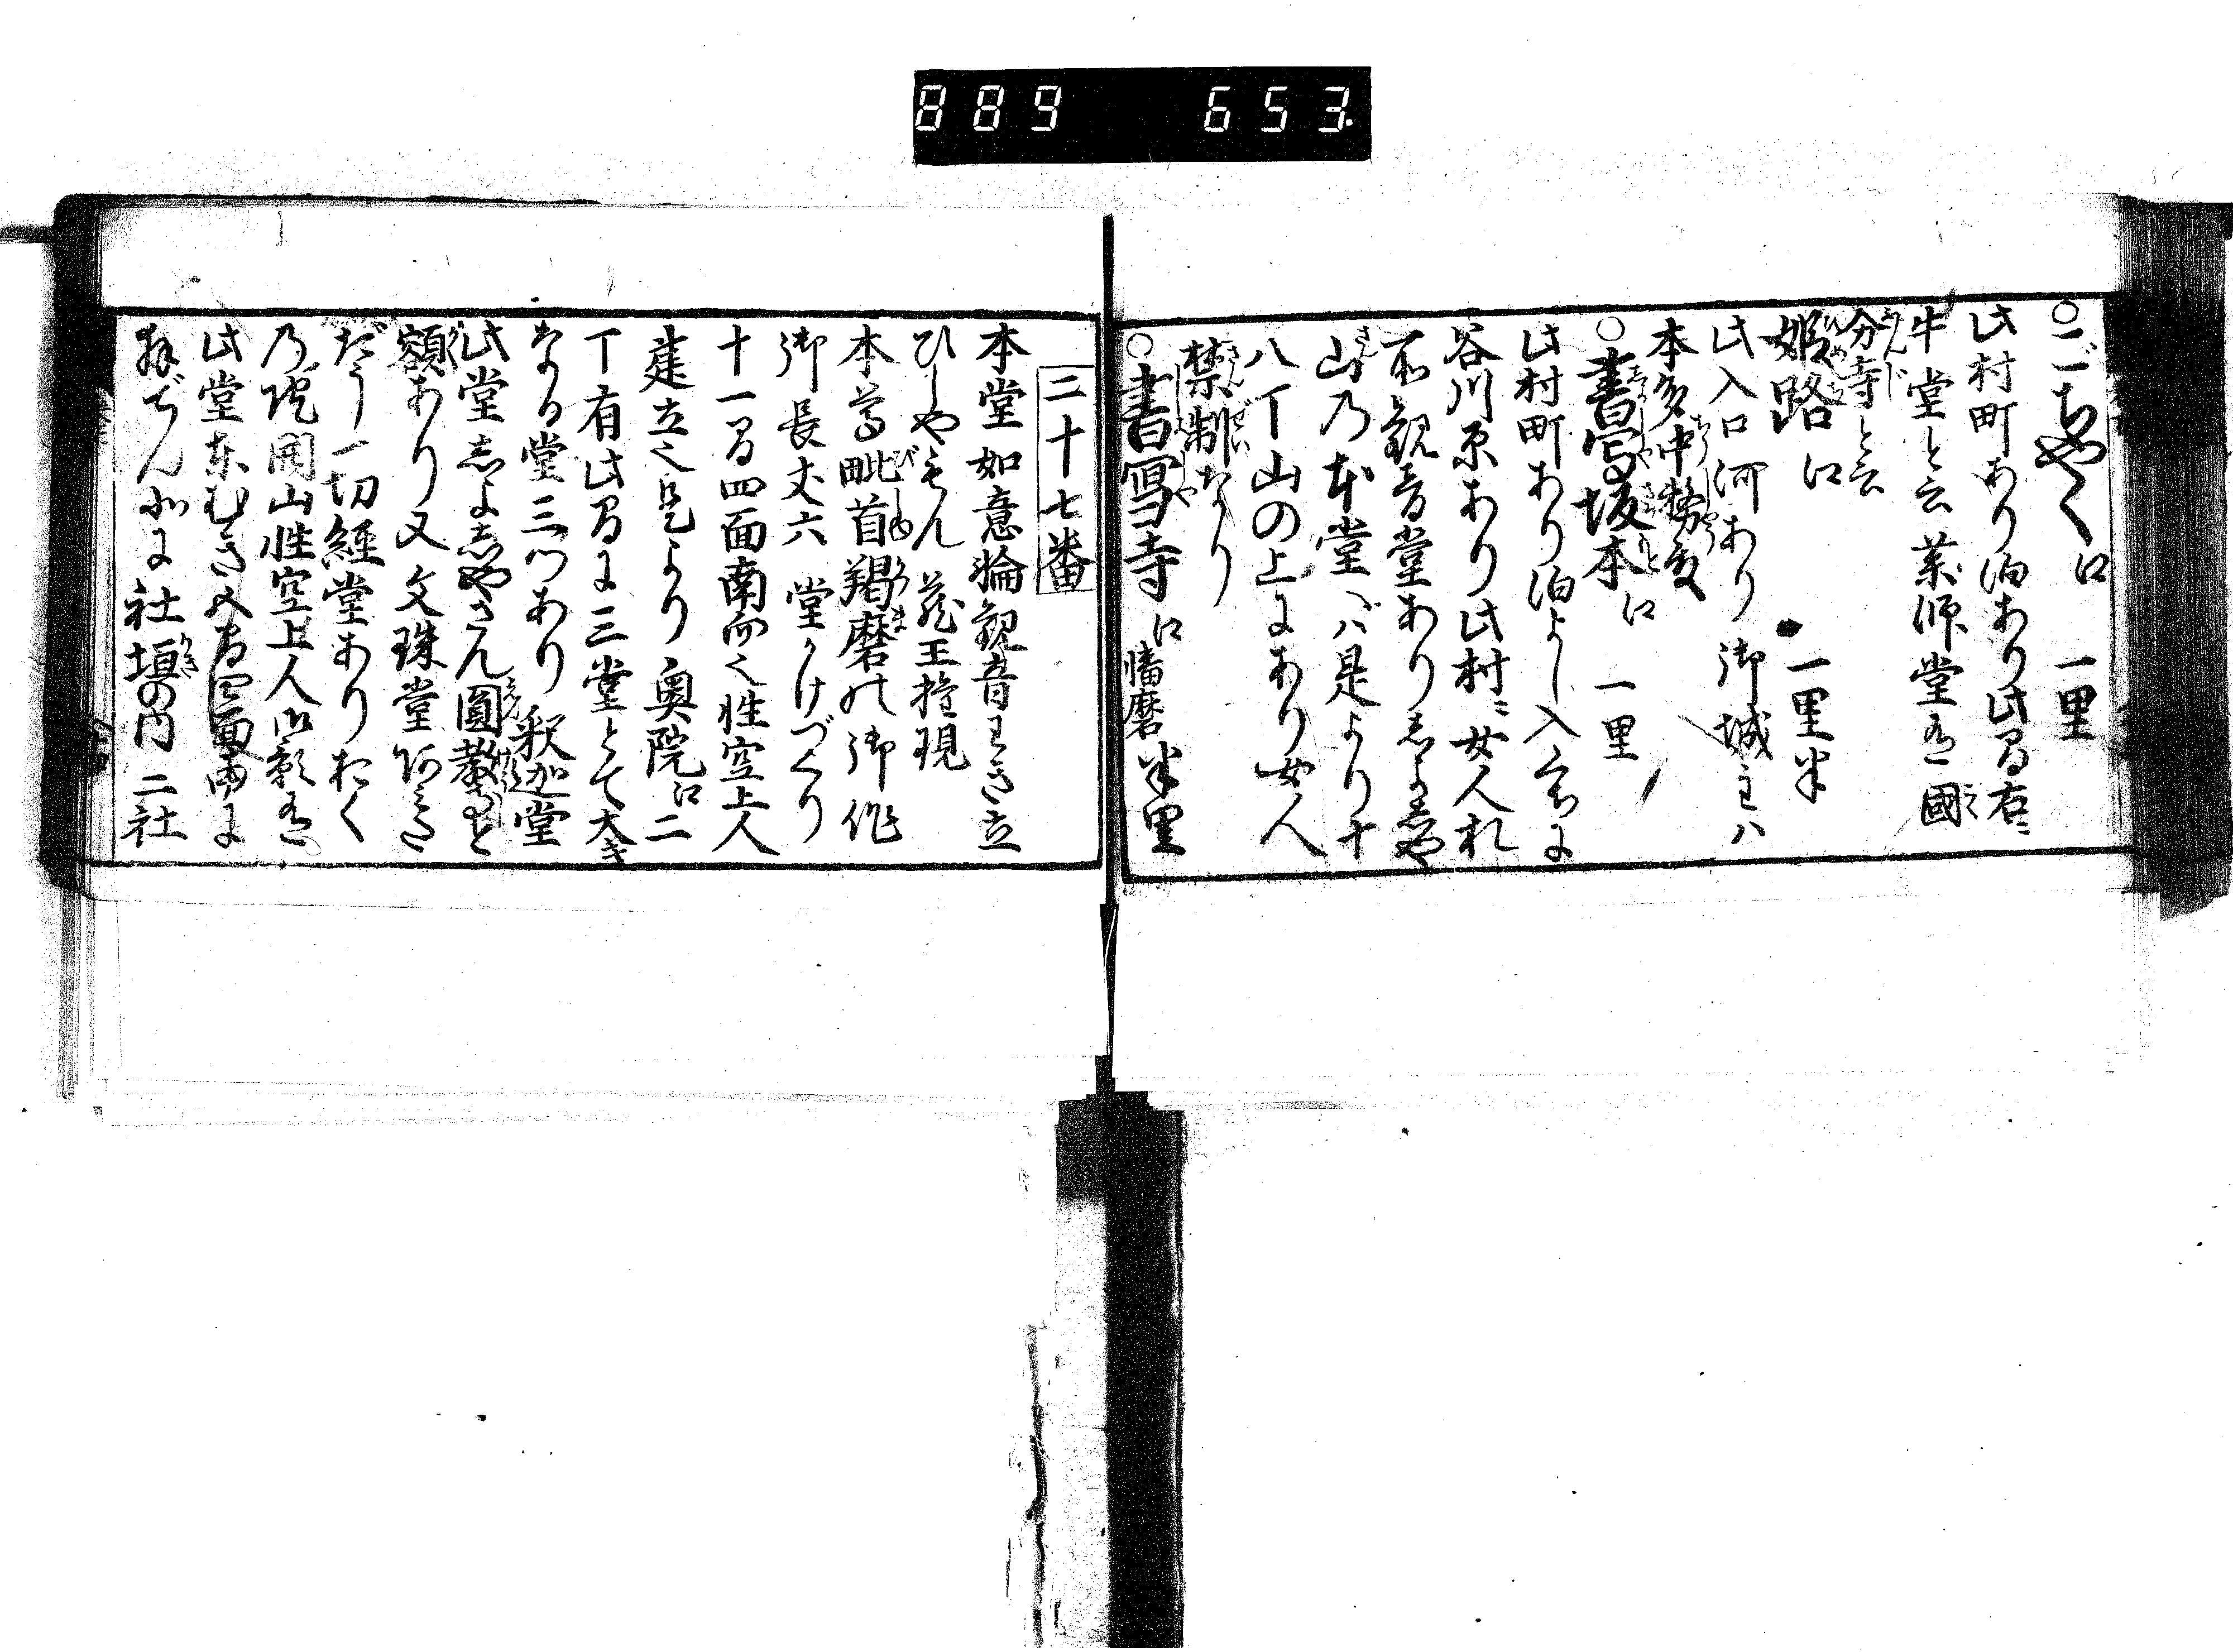 889 653
○ごちやく口 一里
此村町あり泊あり此間右ニ
牛堂と云薬師堂有國
分寺と云
姫路口 一里半
此入口河あり御城主ハ
本多中務
○書写坂本口 一里
此村町あり泊よし入口に
谷川原あり此村ニ女人札
所観音堂ありしよしや
山乃本堂へハ是より十
八丁山の上にあり女人
禁制なり
○書寫寺口 播磨 半里
二十七番
本堂如意輪観音わき立
ひしやもん蔵王権現
本尊毗首羯磨の御作
御長丈六 堂かけづくり
十一間四面南向く性空上人
建立之是より奥院口二
丁有此間に三堂とて大き
なる堂三つあり釈迦堂
此堂にしよしやさん圓教
額あり又文珠堂
だう一切経堂ありおく
乃院開山性空上人御影有
此堂東むき五間四面両に
社垣の内二社